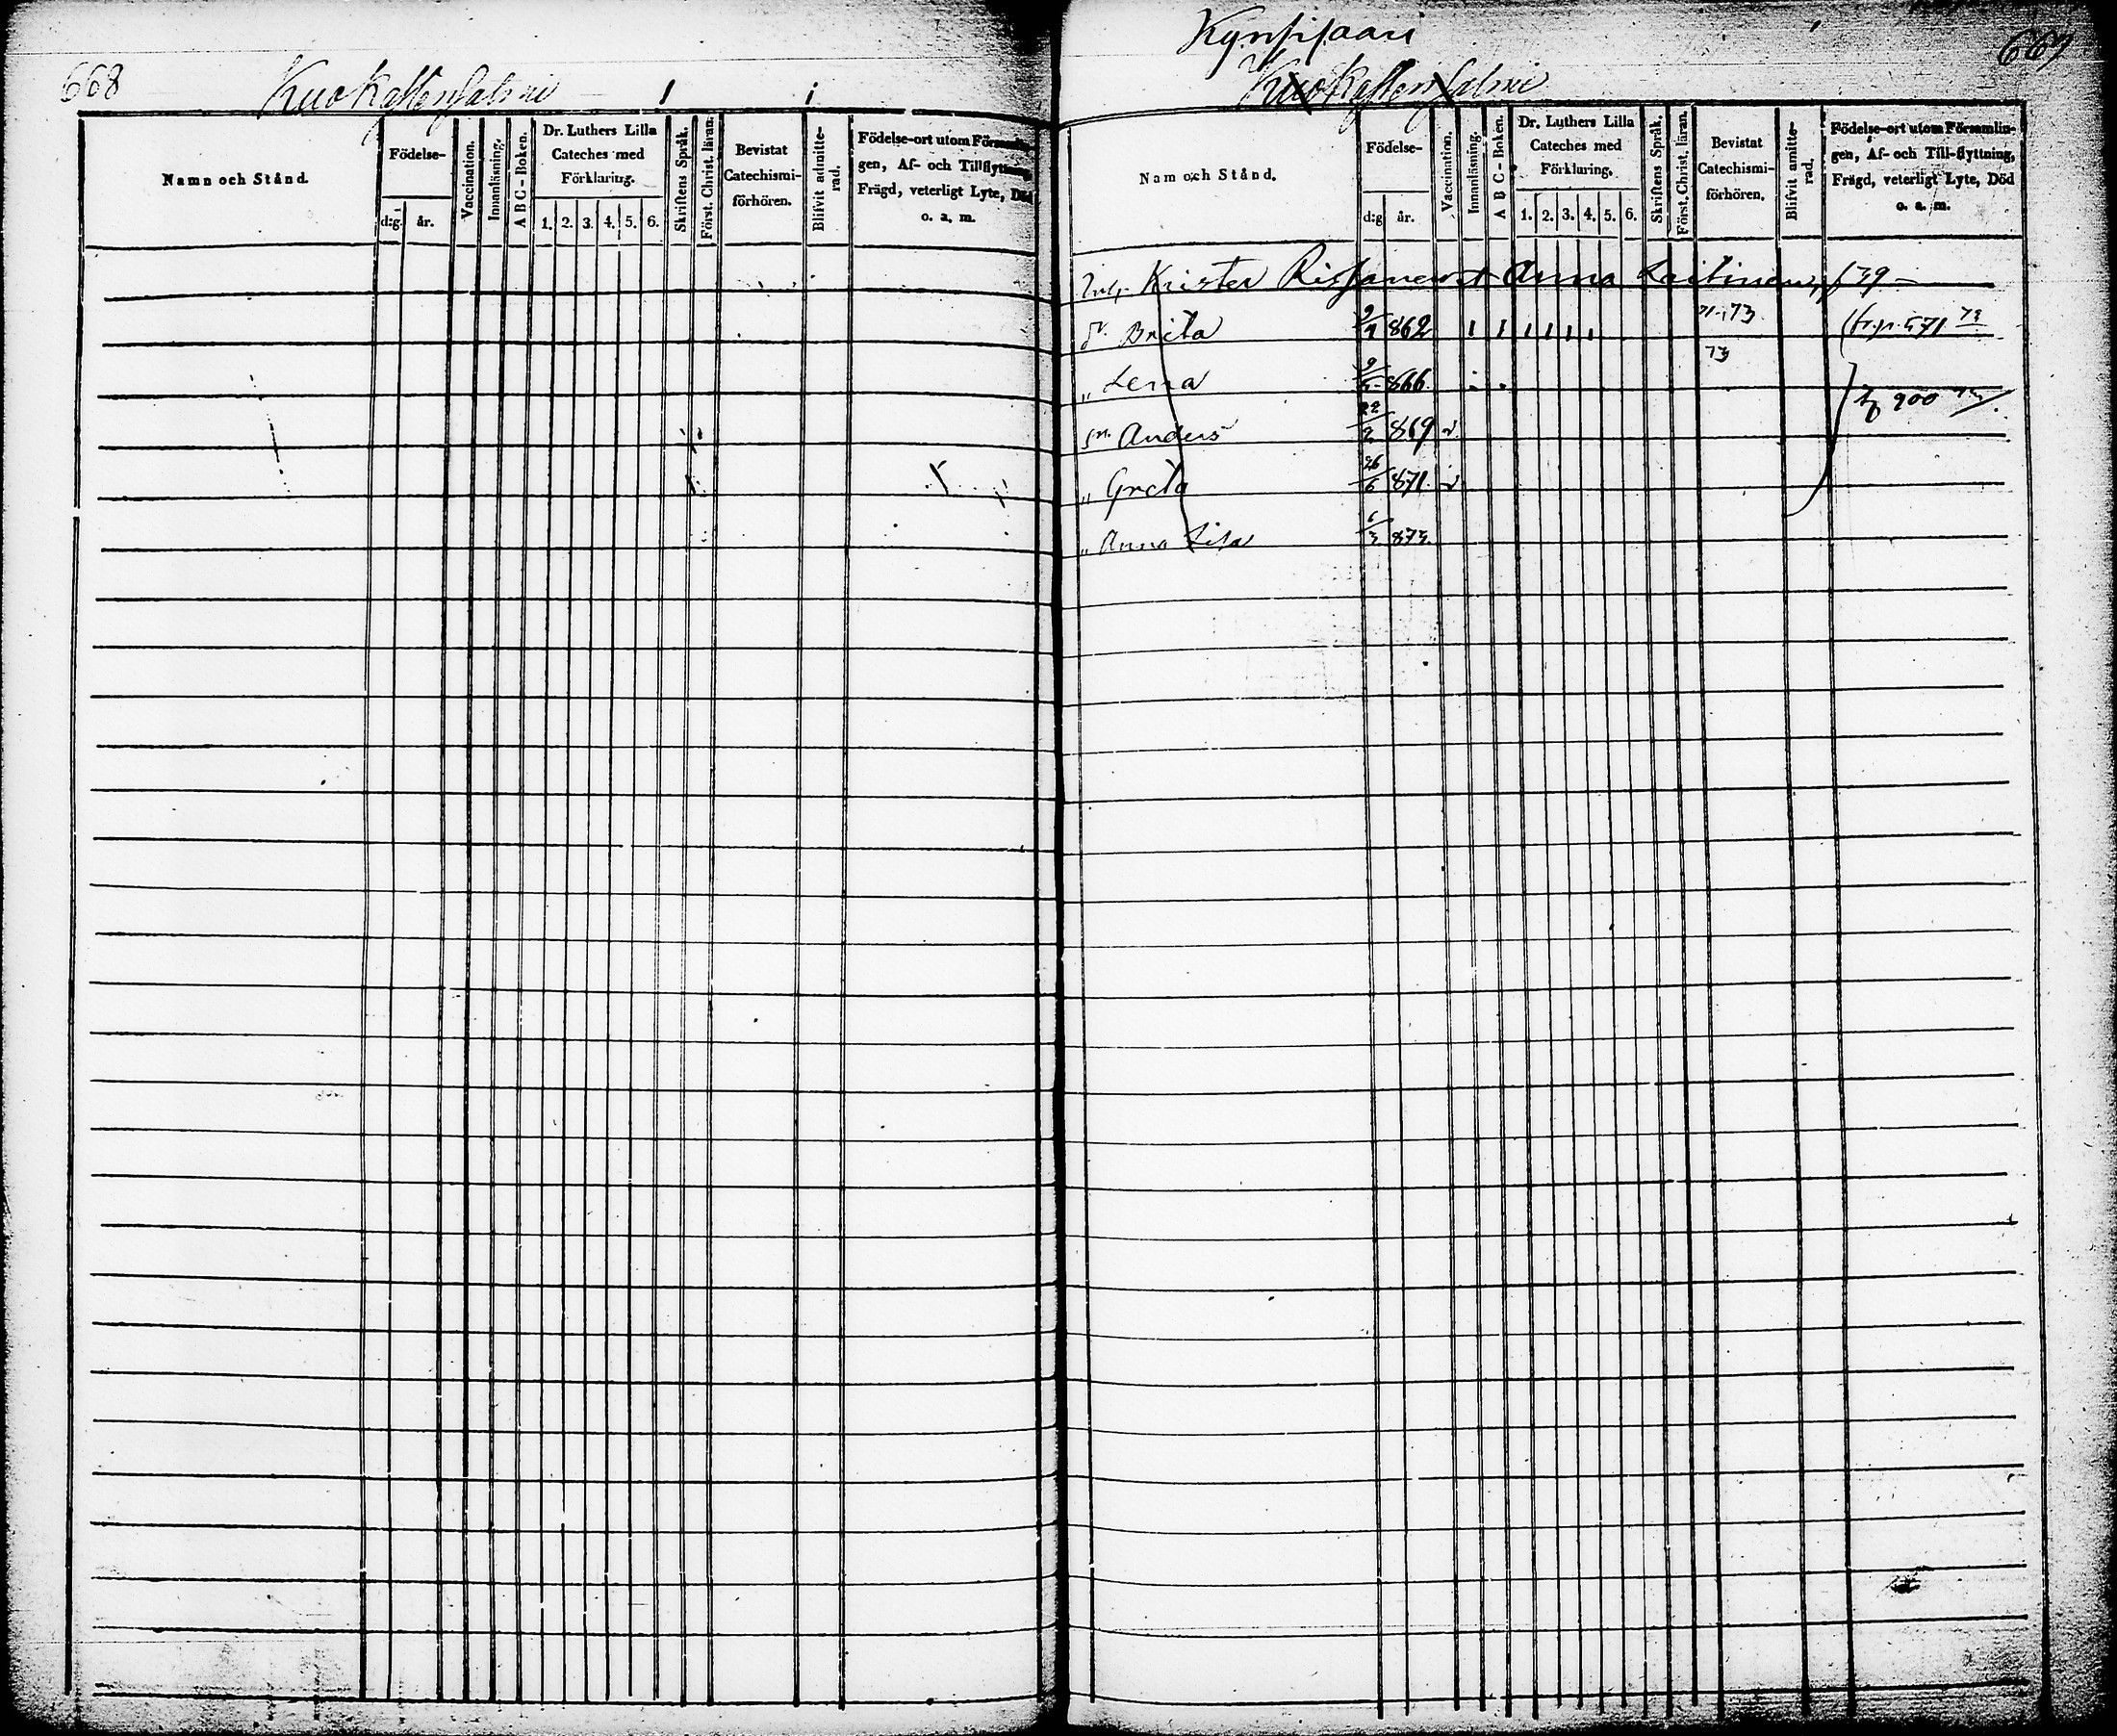 668
Kuokattensalmi
Namn och Stånd.
Födelse-
d:g.
år.
Vaccination.
Innanläsning.
A B C - Boken.
Dr. Luthers Lilla
Cateches med
Förklaring.
1. 2. 3. 4. 5. 6.
Skriftens Språk.
Först. Christ. läran.
Bevistat
Catechismi-
förhören.
Blifvit admitte-
rad.
Födelse-ort utom Församlin-
gen, Af- och Tillflyttning,
Frägd, veterligt Lyte, Död
o. a. m.
Kynsisaari
669
Kuokattensalmi
Namn och Stånd.
Födelse-
d:g
år.
Vaccination.
Innanläsning.
A B C - Boken.
Dr. Luthers Lilla
Cateches med
Förklaring.
1. 2. 3. 4. 5. 6.
Skriftens Språk.
Först. Christ. läran.
Bevistat
Catechismi-
förhören.
Blifvit amitte-
rad.
Födelse-ort utom Församlin-
gen, Af- och Till-flyttning,
Frägd, veterligt Lyte, Död
o. a. m.
Krister Rissanen Anna Laitinen
Brita 862 73 571
Lena 866 73
900
Anders 22/2 869
Greta 26/6 871
Anna Lisa 873